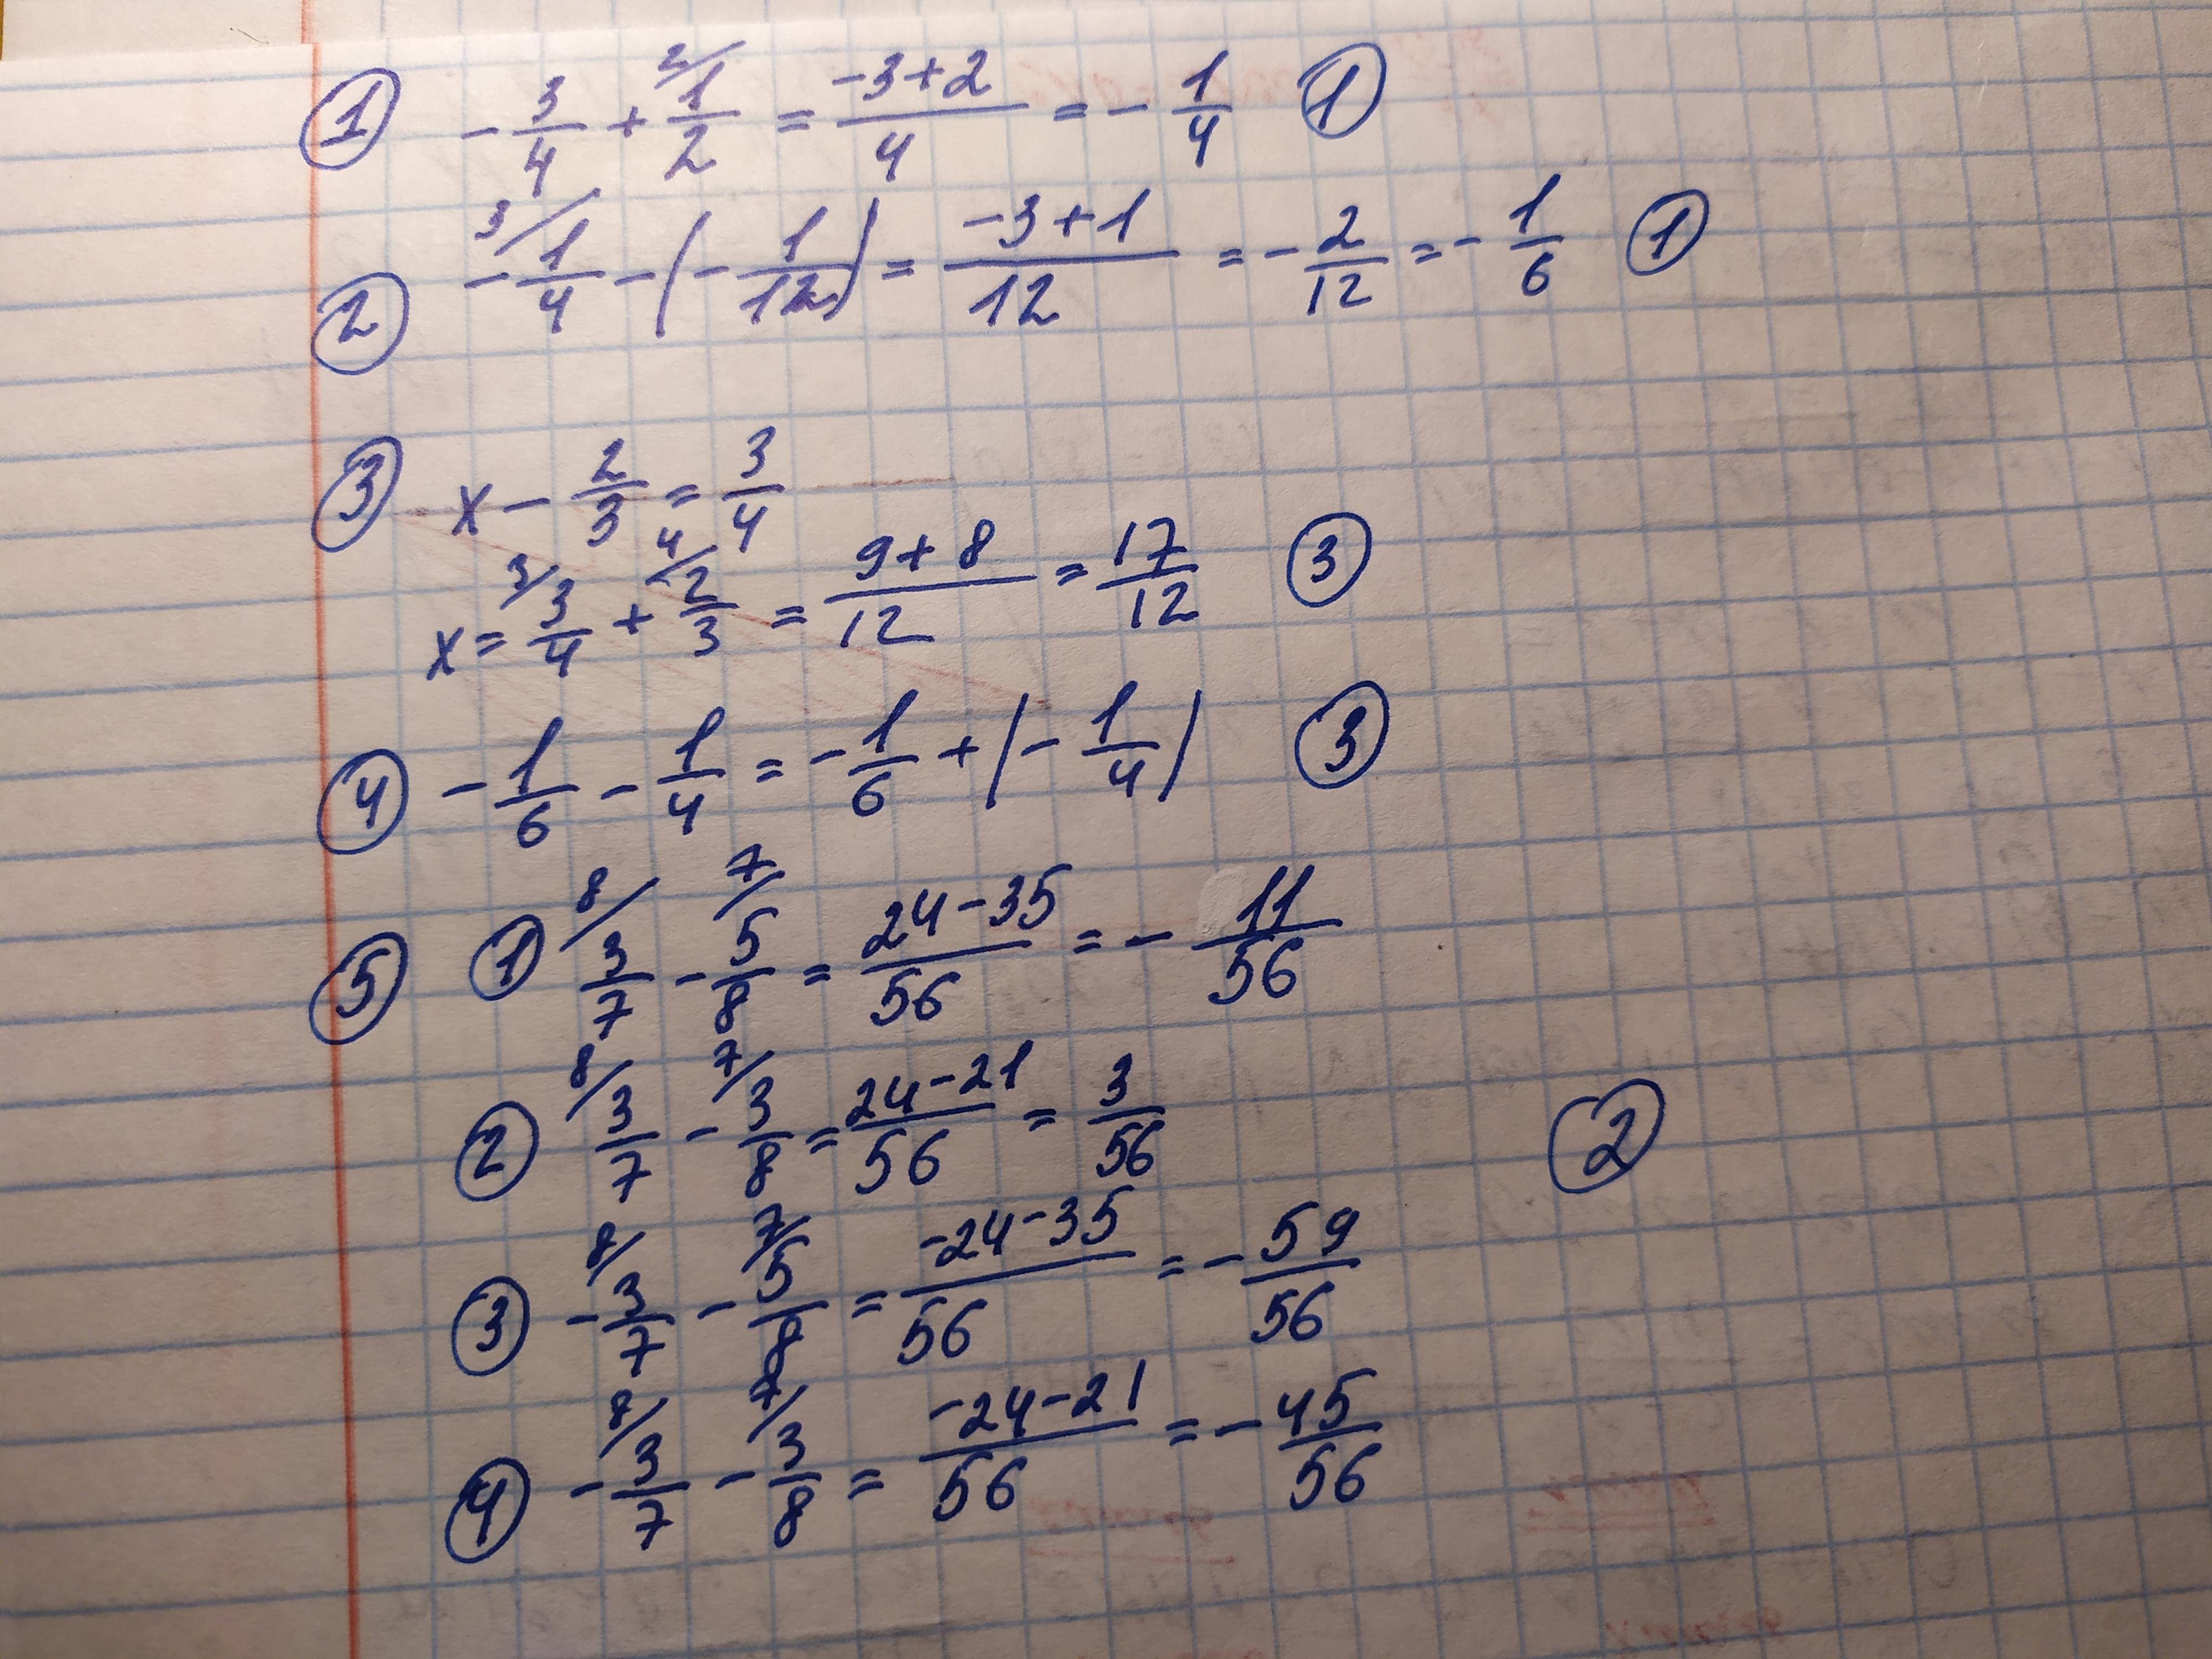 ① -3/4 + ²⁄1/2 = (-3+2)/4 = -1/4 ①
② -³⁄1/4 - (-1/12) = (-3+1)/12 = -2/12 = -1/6 ①
③ x - 2/3 = 3/4
x = ³⁄3/4 + ⁴⁄2/3 = (9+8)/12 = 17/12 ③
④ -1/6 - 1/4 = -1/6 + (-1/4) ③
⑤ ① ⁸⁄3/7 - ⁷⁄5/8 = (24-35)/56 = -11/56
② ⁸⁄3/7 - ⁷⁄3/8 = (24-21)/56 = 3/56 ②
③ -⁸⁄3/7 - ⁷⁄5/8 = (-24-35)/56 = -59/56
④ -⁸⁄3/7 - ⁷⁄3/8 = (-24-21)/56 = -45/56